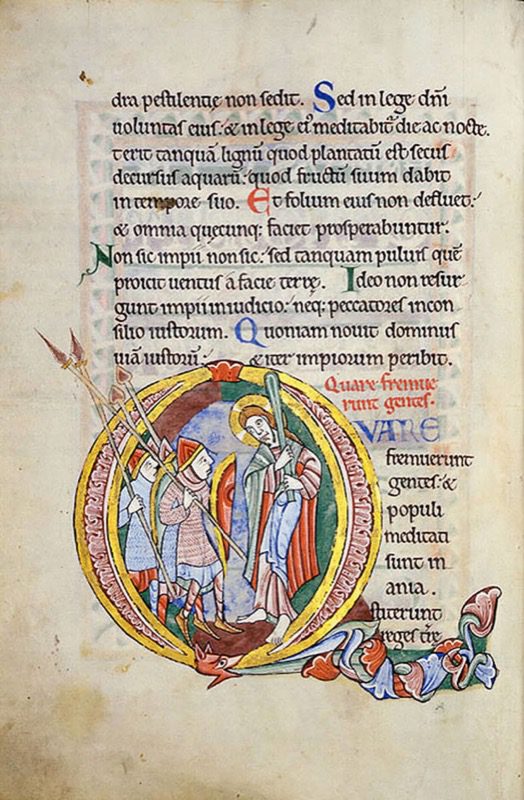 dra pestilentię non sedit. Sed in lege dn̄i
uoluntas eius: & in lege ei᷒ meditabit᷑ die ac nocte.
terit tanquā lignū quod plantatū est secus
decursus aquarū: quod fructū suum dabit
in tempore suo. Et folium eius non defluet:
& omnia quęcunq; faciet prosperabuntur.
Non sic impii non sic: sed tanquam puluis quē
proicit uentus a facie terrę. Ideo non resur
gunt impii in iudicio: neq; peccatores in con
silio iustorum. Quoniam nouit dominus
uiā iustorū: & iter impiorum peribit.
Quare fremue
runt gentes.
QVARE
fremuerunt
gentes: &
populi
meditati
sunt in
ania.
stiterunt
reges